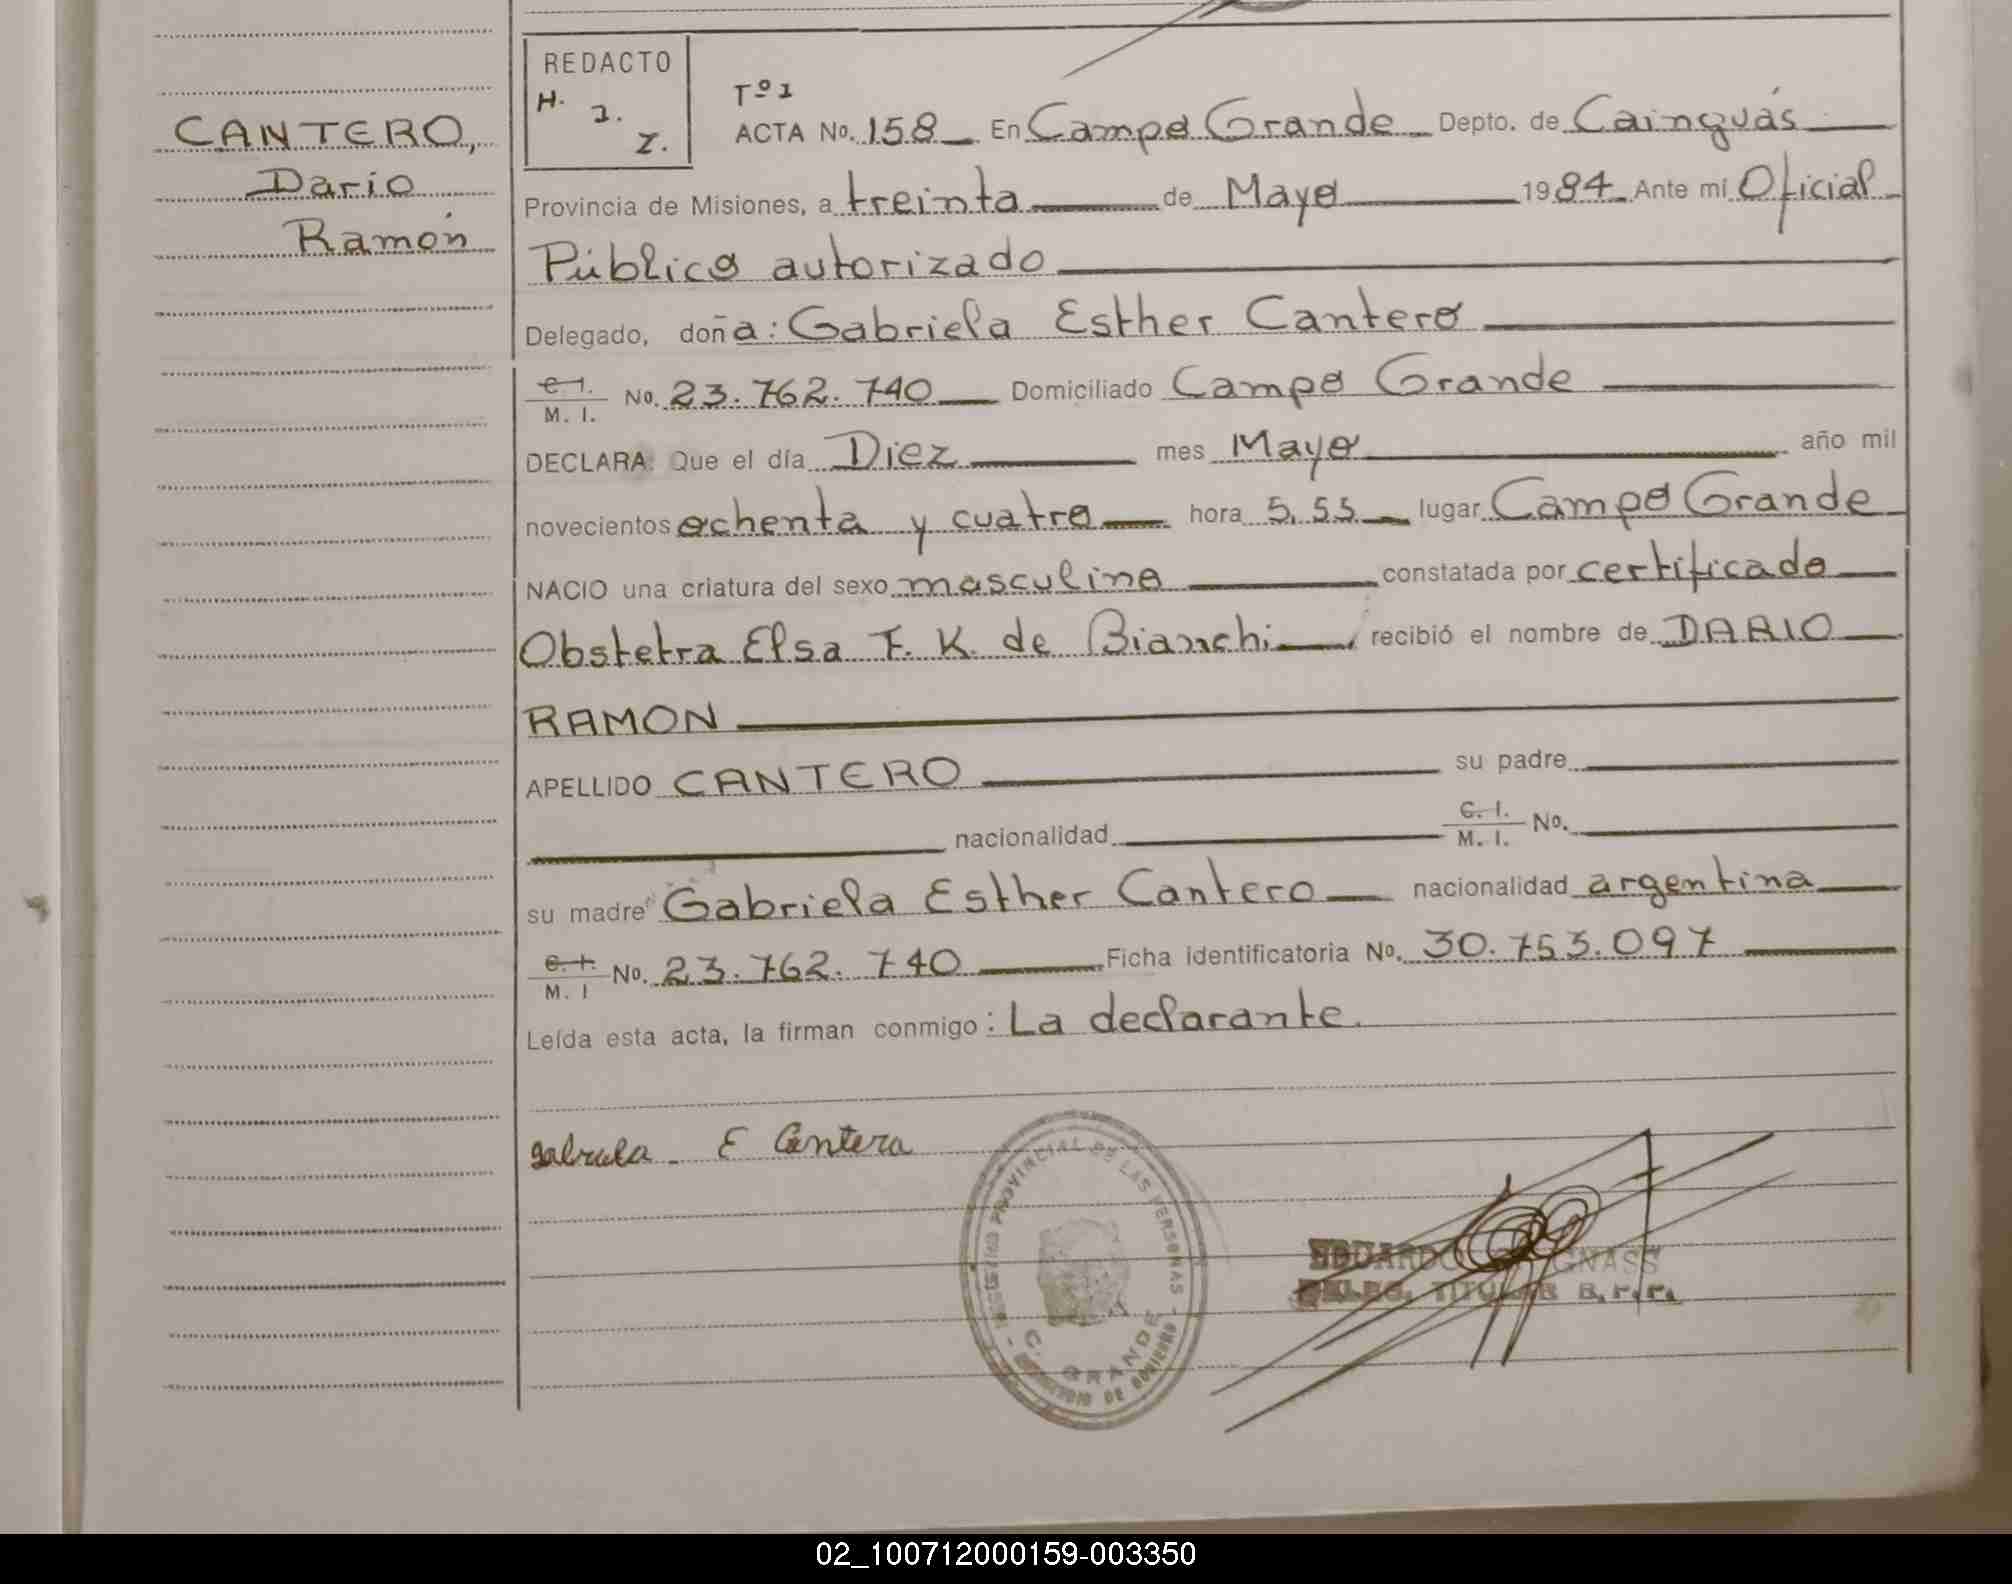 CANTERO,
Dario
Ramón
REDACTO
H. J. Z.
Tº 1
ACTA No. 158 En Campo Grande Depto. de Cainguás
Provincia de Misiones, a treinta de Mayo 1984 Ante mí Oficial
Público autorizado
Delegado, doña: Gabriela Esther Cantero
C. I.
M. I. No. 23.762.740 Domiciliado Campo Grande
DECLARA: Que el día Diez mes Mayo año mil
novecientos ochenta y cuatro hora 5,55 lugar Campo Grande
NACIO una criatura del sexo masculino constatada por certificado
Obstetra Elsa F. K. de Bianchi recibió el nombre de DARIO
RAMON
APELLIDO CANTERO su padre
nacionalidad C. I.
M. I. No.
su madre Gabriela Esther Cantero nacionalidad argentina
C. I.
M. I No. 23.762.740 Ficha identificatoria No. 30.753.097
Leída esta acta, la firman conmigo: La declarante.
Gabriela E Cantero
PROVINCIAL DE LAS PERSONAS
C. GRANDE
DE GOBIERNO
EDUARDO
TITULAR
02_100712000159-003350